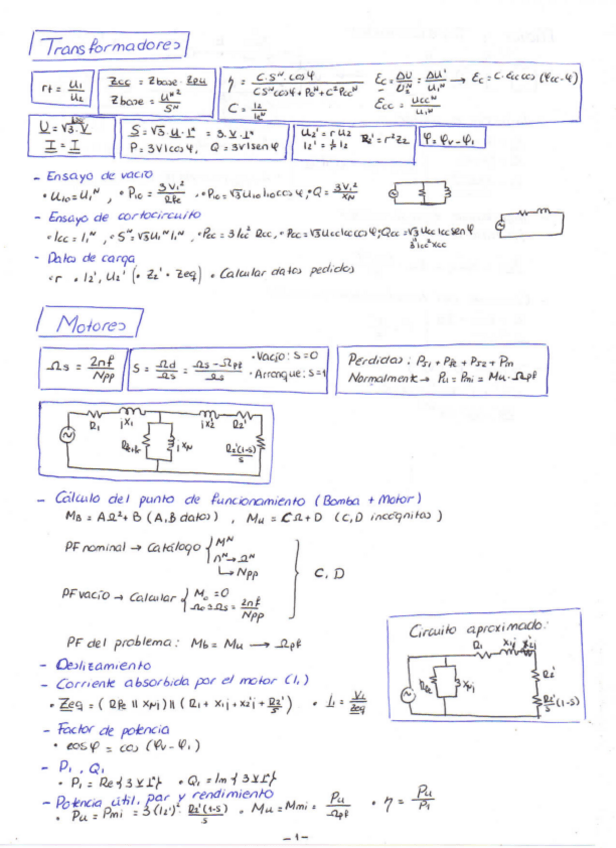 Transformadores
rt = U₁/U₂
Zcc = Zbase · Zpu
Zbase = U^N²/S^N
η = C·S^N·cosφ / (C S^N cosφ + P₀^N + C²Pcc^N)
C = I₂/I₂^N
Ec = ΔU/U₂^N = ΔU'/U₁^N → Ec = C·Ecc cos(φcc-φ)
Ecc = Ucc^N/U₁^N
U = √3·V
I = I
S = √3·U·I* = 3·V·I*
P = 3VIcosφ, Q = 3VIsenφ
U₂' = rU₂
I₂' = 1/r I₂
Z₂' = r²Z₂
φ = φv-φI
- Ensayo de vacío
· U₁₀ = U₁^N, · P₁₀ = 3V₁²/RFe, · P₁₀ = √3U₁₀I₁₀cosφ, · Q = 3V₁²/XN
- Ensayo de cortocircuito
· Icc = I₁^N, · S^N = √3U₁^N I₁^N, · Pcc = 3Icc²Rcc, · Pcc = √3UccIcccosφ; Qcc = √3UccIccsenφ
3Icc²Xcc
- Datos de carga
· r · I₂', U₂' ( · Z₂' · Zeq) · Calcular datos pedidos
Motores
Ωs = 2πf/Npp
S = Ωd/Ωs = (Ωs-Ωpf)/Ωs
· Vacío: S=0
· Arranque: S=1
Pérdidas: Ps1 + PFe + Ps2 + Pm
Normalmente → Pu = Pmi = Mu·Ωpf
R₁ jX₁ jX₂' R₂'
jXN R₂'(1-S)/S
- Cálculo del punto de funcionamiento (Bomba + Motor)
MB = AΩ² + B (A,B datos), Mu = CΩ + D (C,D incógnitas)
PF nominal → Catálogo { M^N
n^N → Ω^N
↳ Npp
C, D
PF vacío → Calcular { M₀ = 0
Ω₀ = Ωs = 2πf/Npp
PF del problema: Mb = Mu → Ωpf
Circuito aproximado:
R₁ X₁j X₂'j
RFe XNj R₂'
R₂'(1-S)/S
- Deslizamiento
- Corriente absorbida por el motor (I₁)
· Zeq = (RFe || XNj) || (R₁ + X₁j + X₂'j + R₂'/S) · I₁ = V₁/Zeq
- Factor de potencia
· cosφ = cos (φv-φI)
- P₁, Q₁
· P₁ = Re{3VI*} · Q₁ = Im{3VI*}
- Potencia útil, par y rendimiento
· Pu = Pmi = 3(I₂')² R₂'(1-S)/S · Mu = Mmi = Pu/Ωpf · η = Pu/P₁
-1-